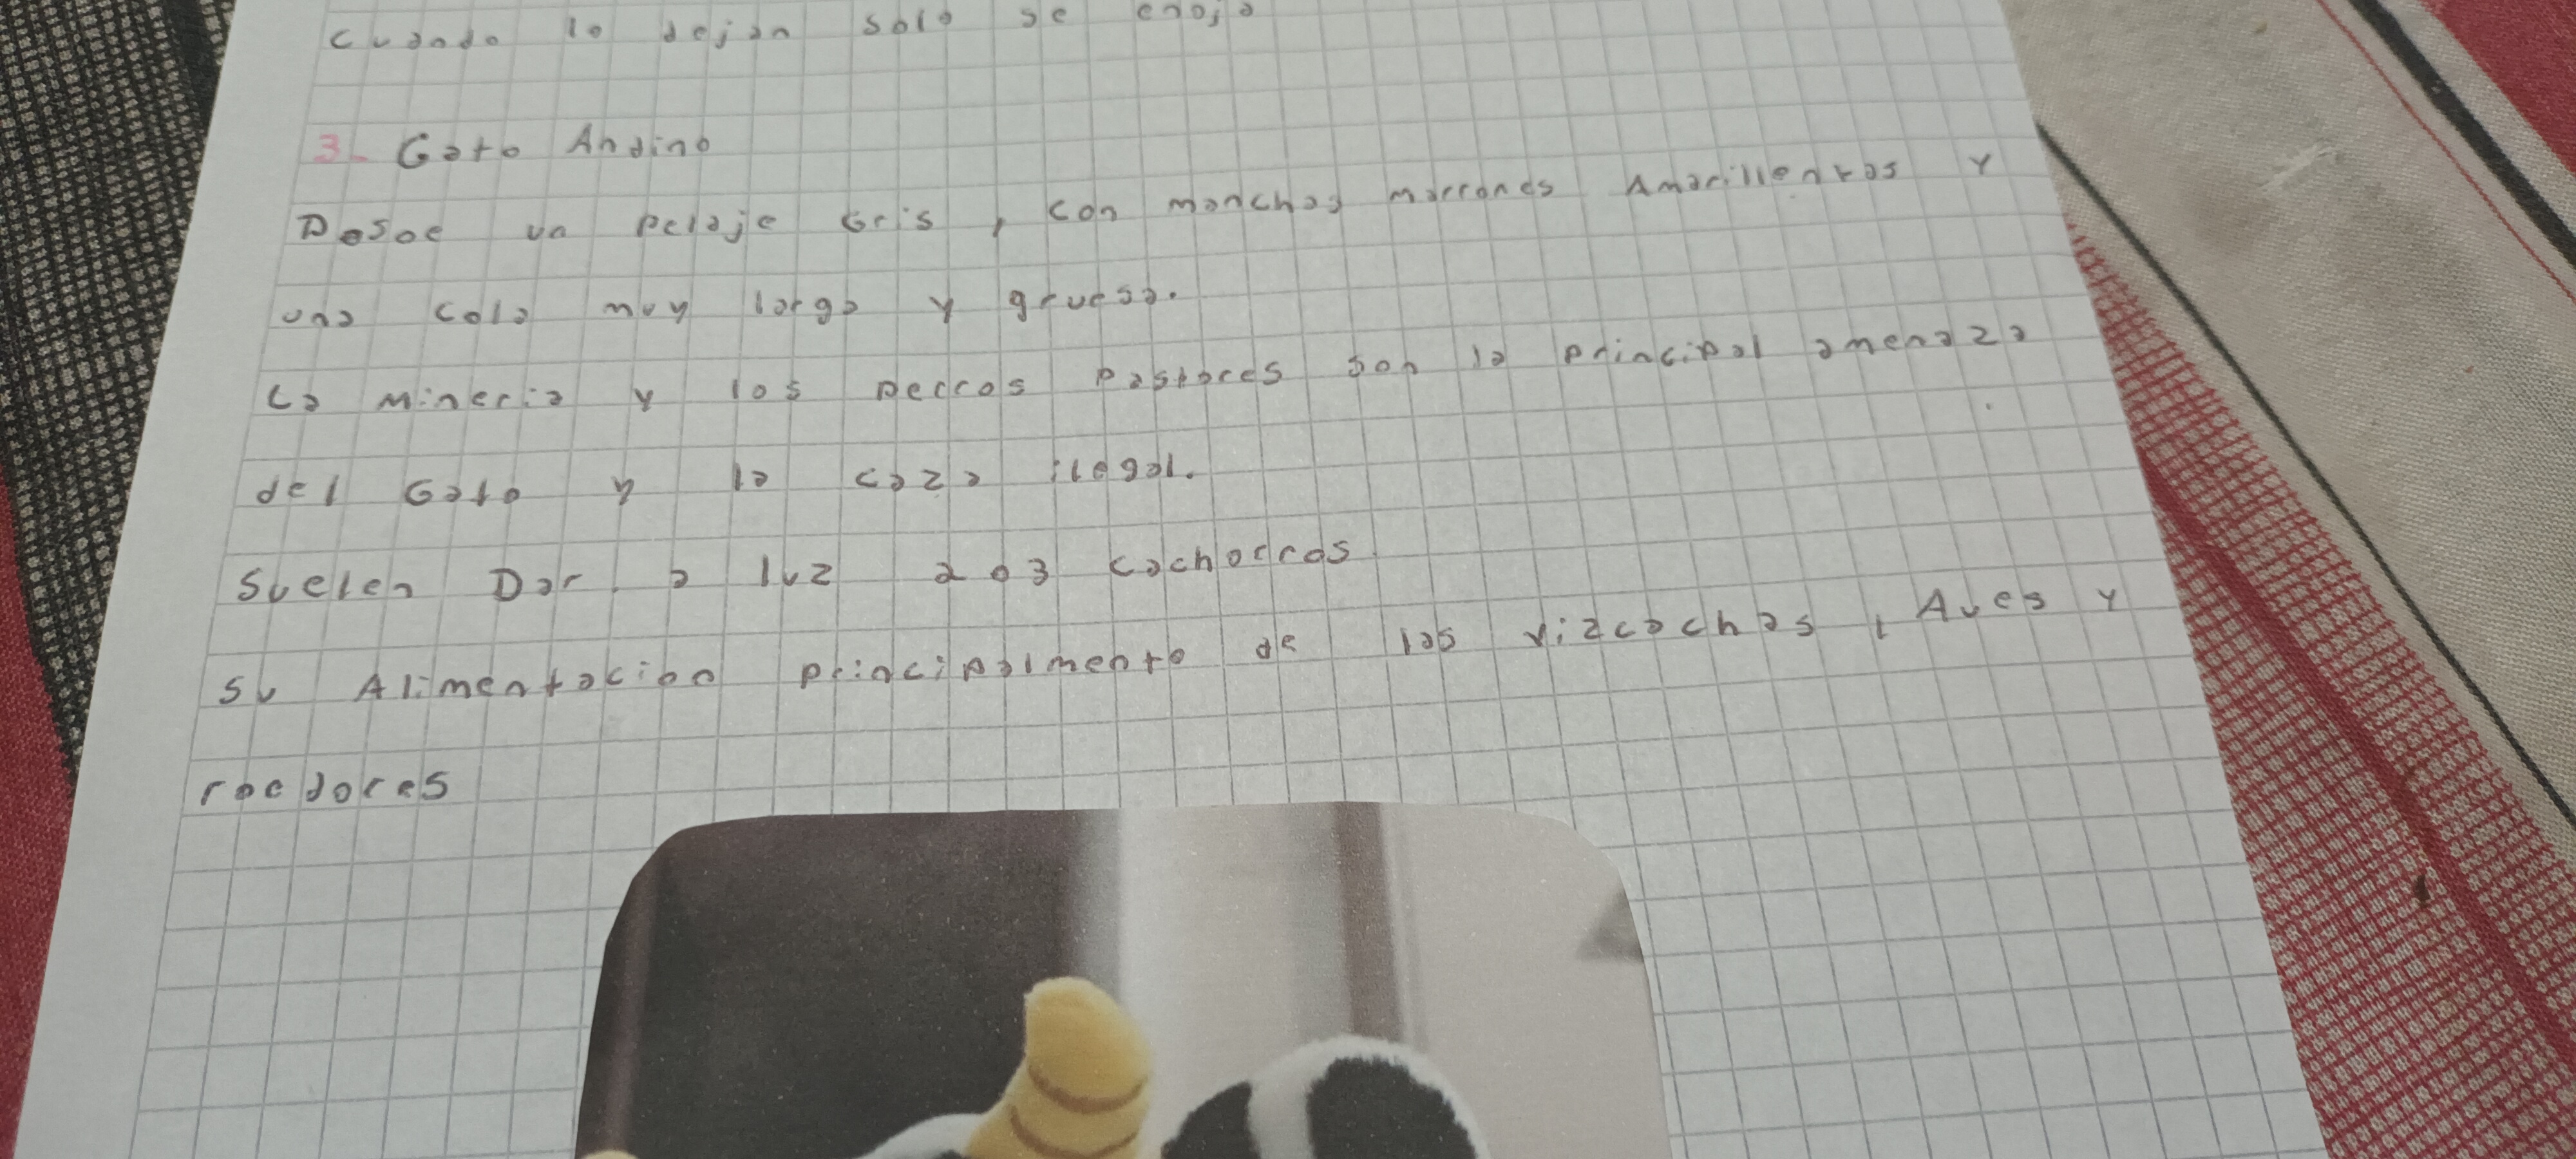 cuando lo dejan solo se enoja
3. Gato Andino
Posoe un pelaje Gris, con manchas marrones Amarillentas y
una cola muy larga y gruesa.
La Mineria y los perros pastores son la principal amenaza
del Gato y la caza ilegal.
Suelen Dar a luz 2 o 3 cachorros
su Alimentacion principalmente de las vizcachas, Aves y
roedores